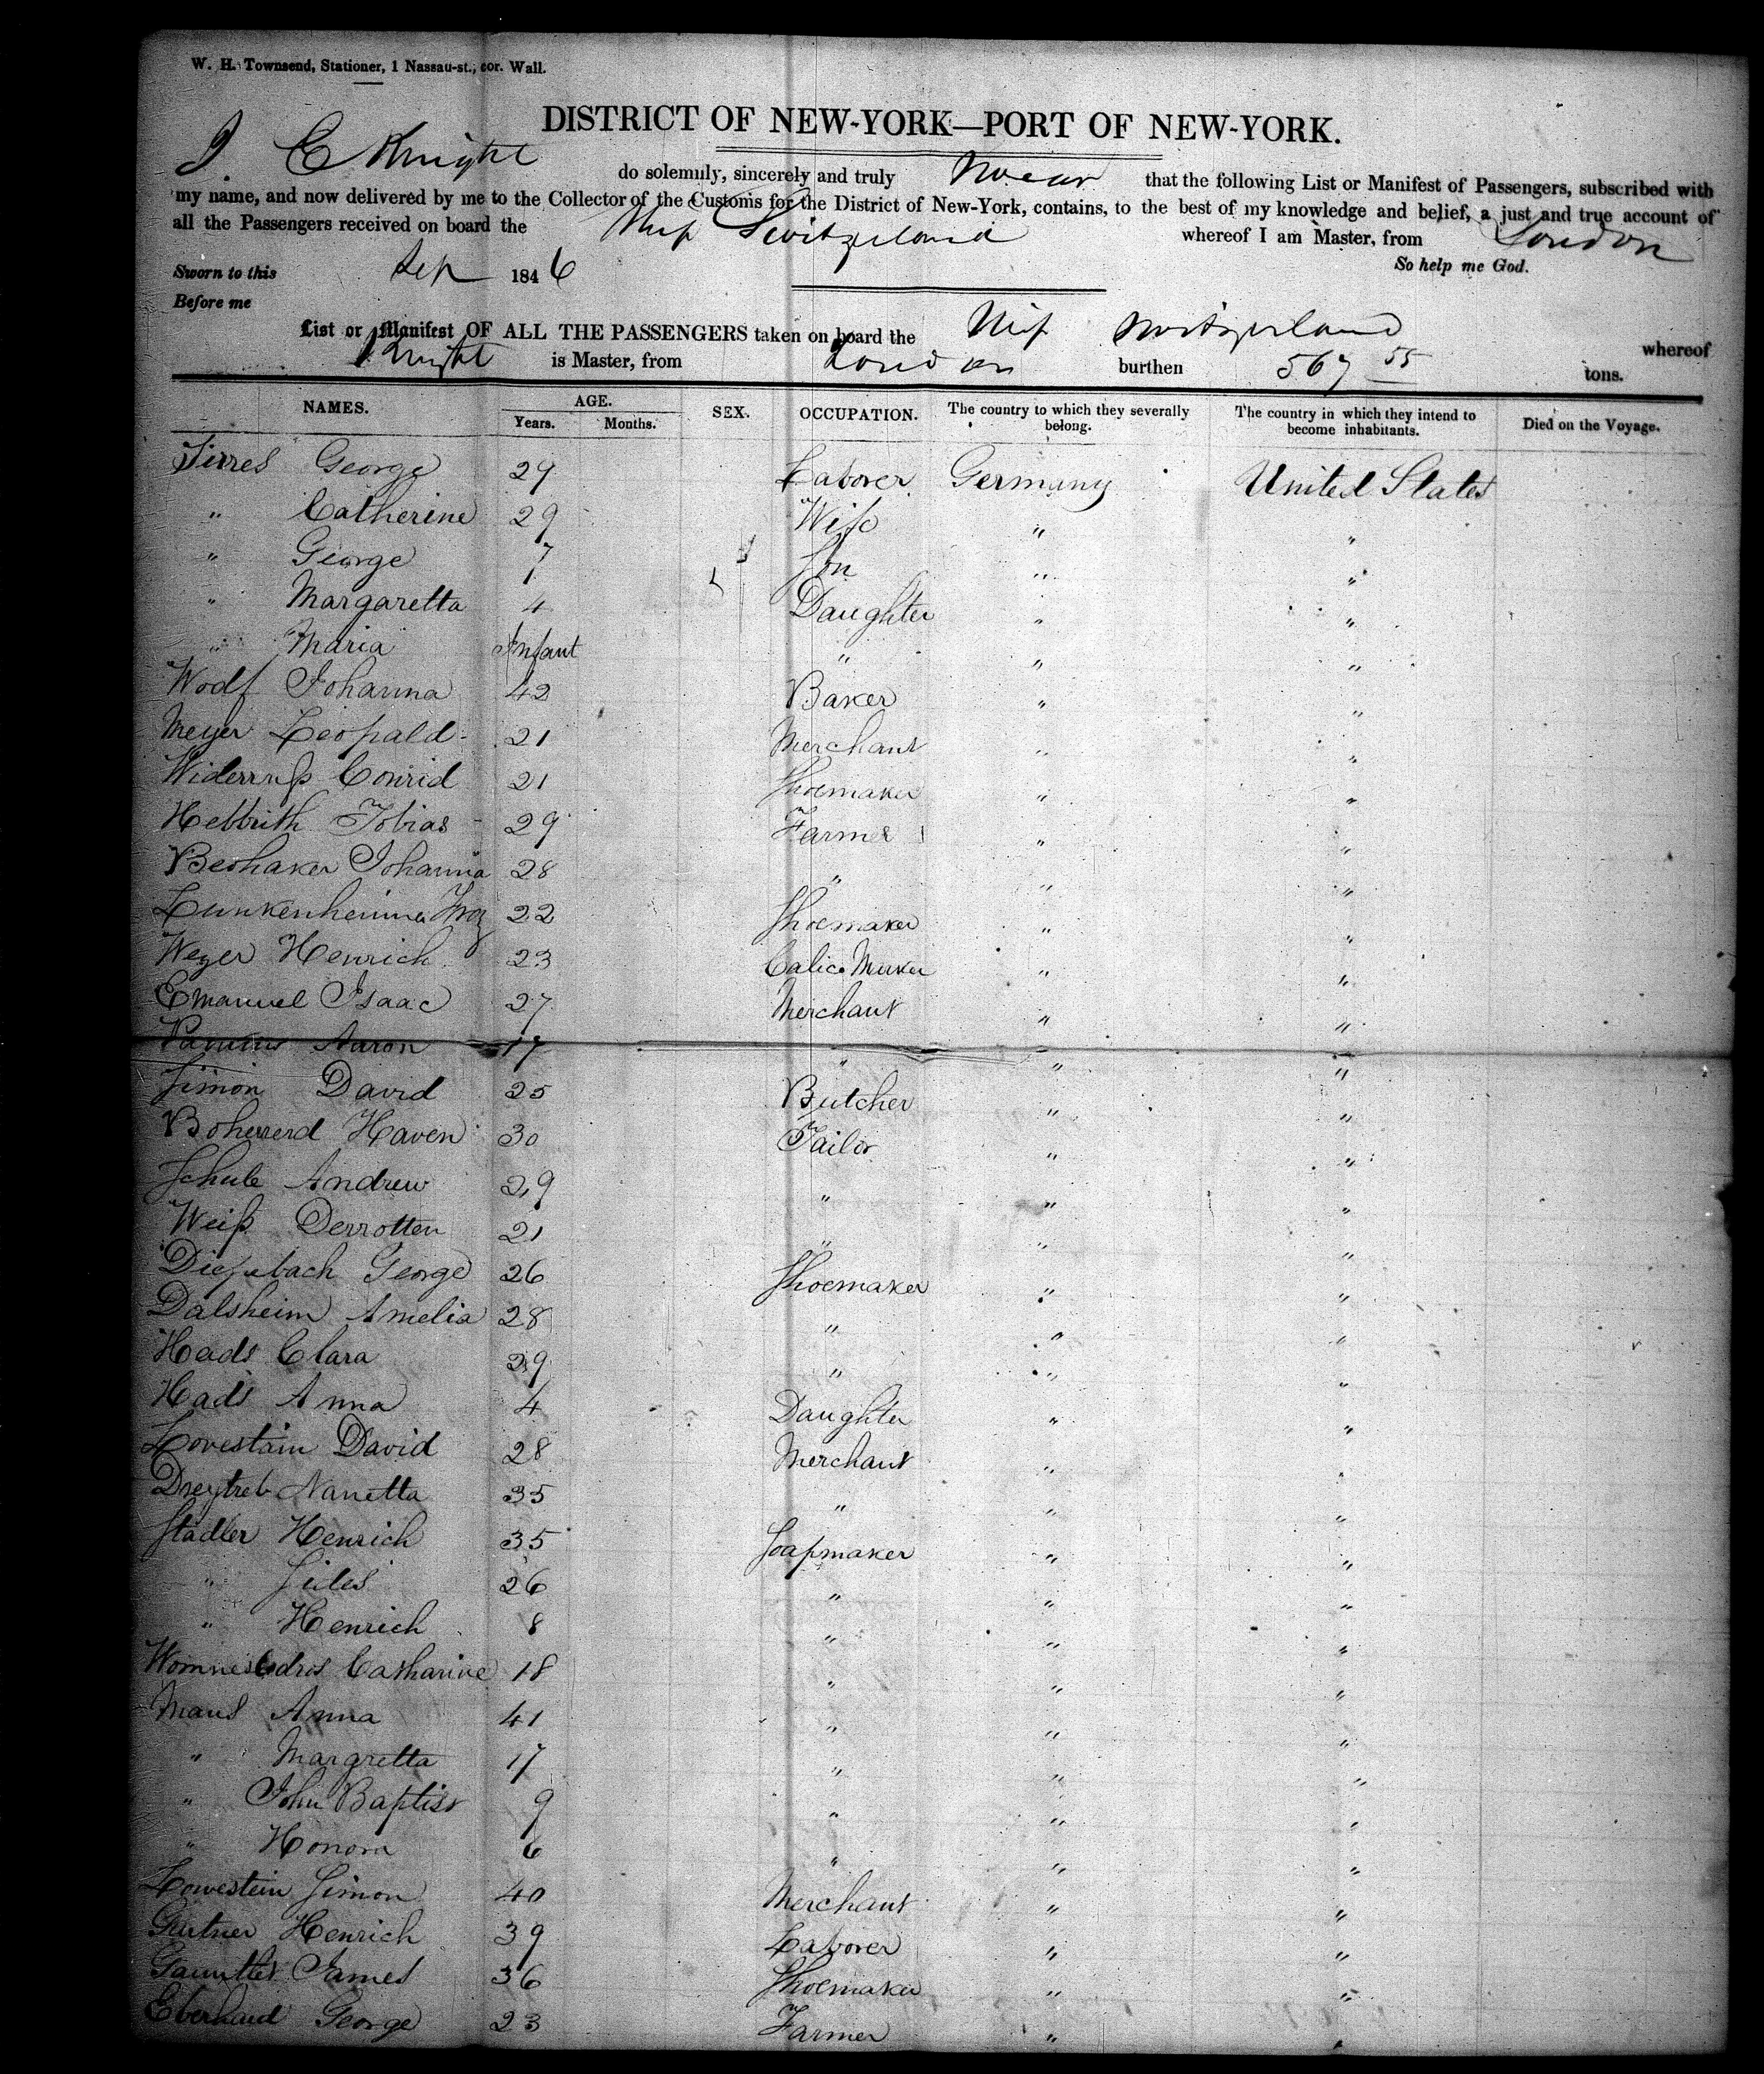 W. H. Townsend, Stationer, 1 Nassau-st., cor. Wall.
DISTRICT OF NEW-YORK—PORT OF NEW-YORK.
I, E Knight do solemnly, sincerely and truly swear that the following List or Manifest of Passengers, subscribed with
my name, and now delivered by me to the Collector of the Customs for the District of New-York, contains, to the best of my knowledge and belief, a just and true account of
all the Passengers received on board the Ship Switzerland whereof I am Master, from London
So help me God.
Sworn to this Sep 1846
Before me
List or Manifest OF ALL THE PASSENGERS taken on board the Ship Switzerland whereof
Knight is Master, from London burthen 567 55 tons.
NAMES. AGE. SEX. OCCUPATION. The country to which they severally belong. The country in which they intend to become inhabitants. Died on the Voyage.
Years. Months.
George 29 Laborer Germany United States
" Catherine 29 Wife " "
" George 7 Son " "
" Margaretta 4 Daughter " "
" Maria Infant " " "
Wodf Johanna 42 Baker " "
Meyer Leopald 21 Merchant " "
Conrid 21 Shoemaker " "
Tobias 29 Farmer " "
Beohaker Johanna 28 " " "
22 Shoemaker " "
Weyer Henrich 23 Calico Maker " "
Emanuel Isaac 27 Merchant " "
Aaron 17 " " "
Simon David 25 Butcher " "
Haven 30 Tailor " "
Schule Andrew 29 " " "
Weiß Derrotten 21 " " "
George 26 Shoemaker " "
Dalsheim Amelia 28 " " "
Hads Clara 29 " " "
Hads Anna 4 Daughter " "
Lovestain David 28 Merchant " "
Nanetta 35 " " "
Stadler Henrich 35 Soapmaker " "
" 26 " " "
" Henrich 8 " " "
Catharine 18 " " "
Maus Anna 41 " " "
" Margretta 17 " " "
" John Baptist 9 " " "
" Honora 6 " " "
Lowestein Simon 40 Merchant " "
Gertner Henrich 39 Laborer " "
James 36 Shoemaker " "
Eberhard George 23 Farmer " "